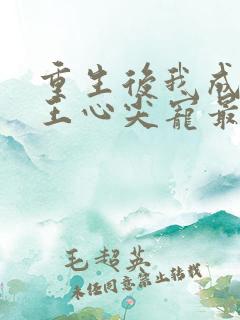 重生後我成
王心尖寵最
毛超英
未经同意禁止转载